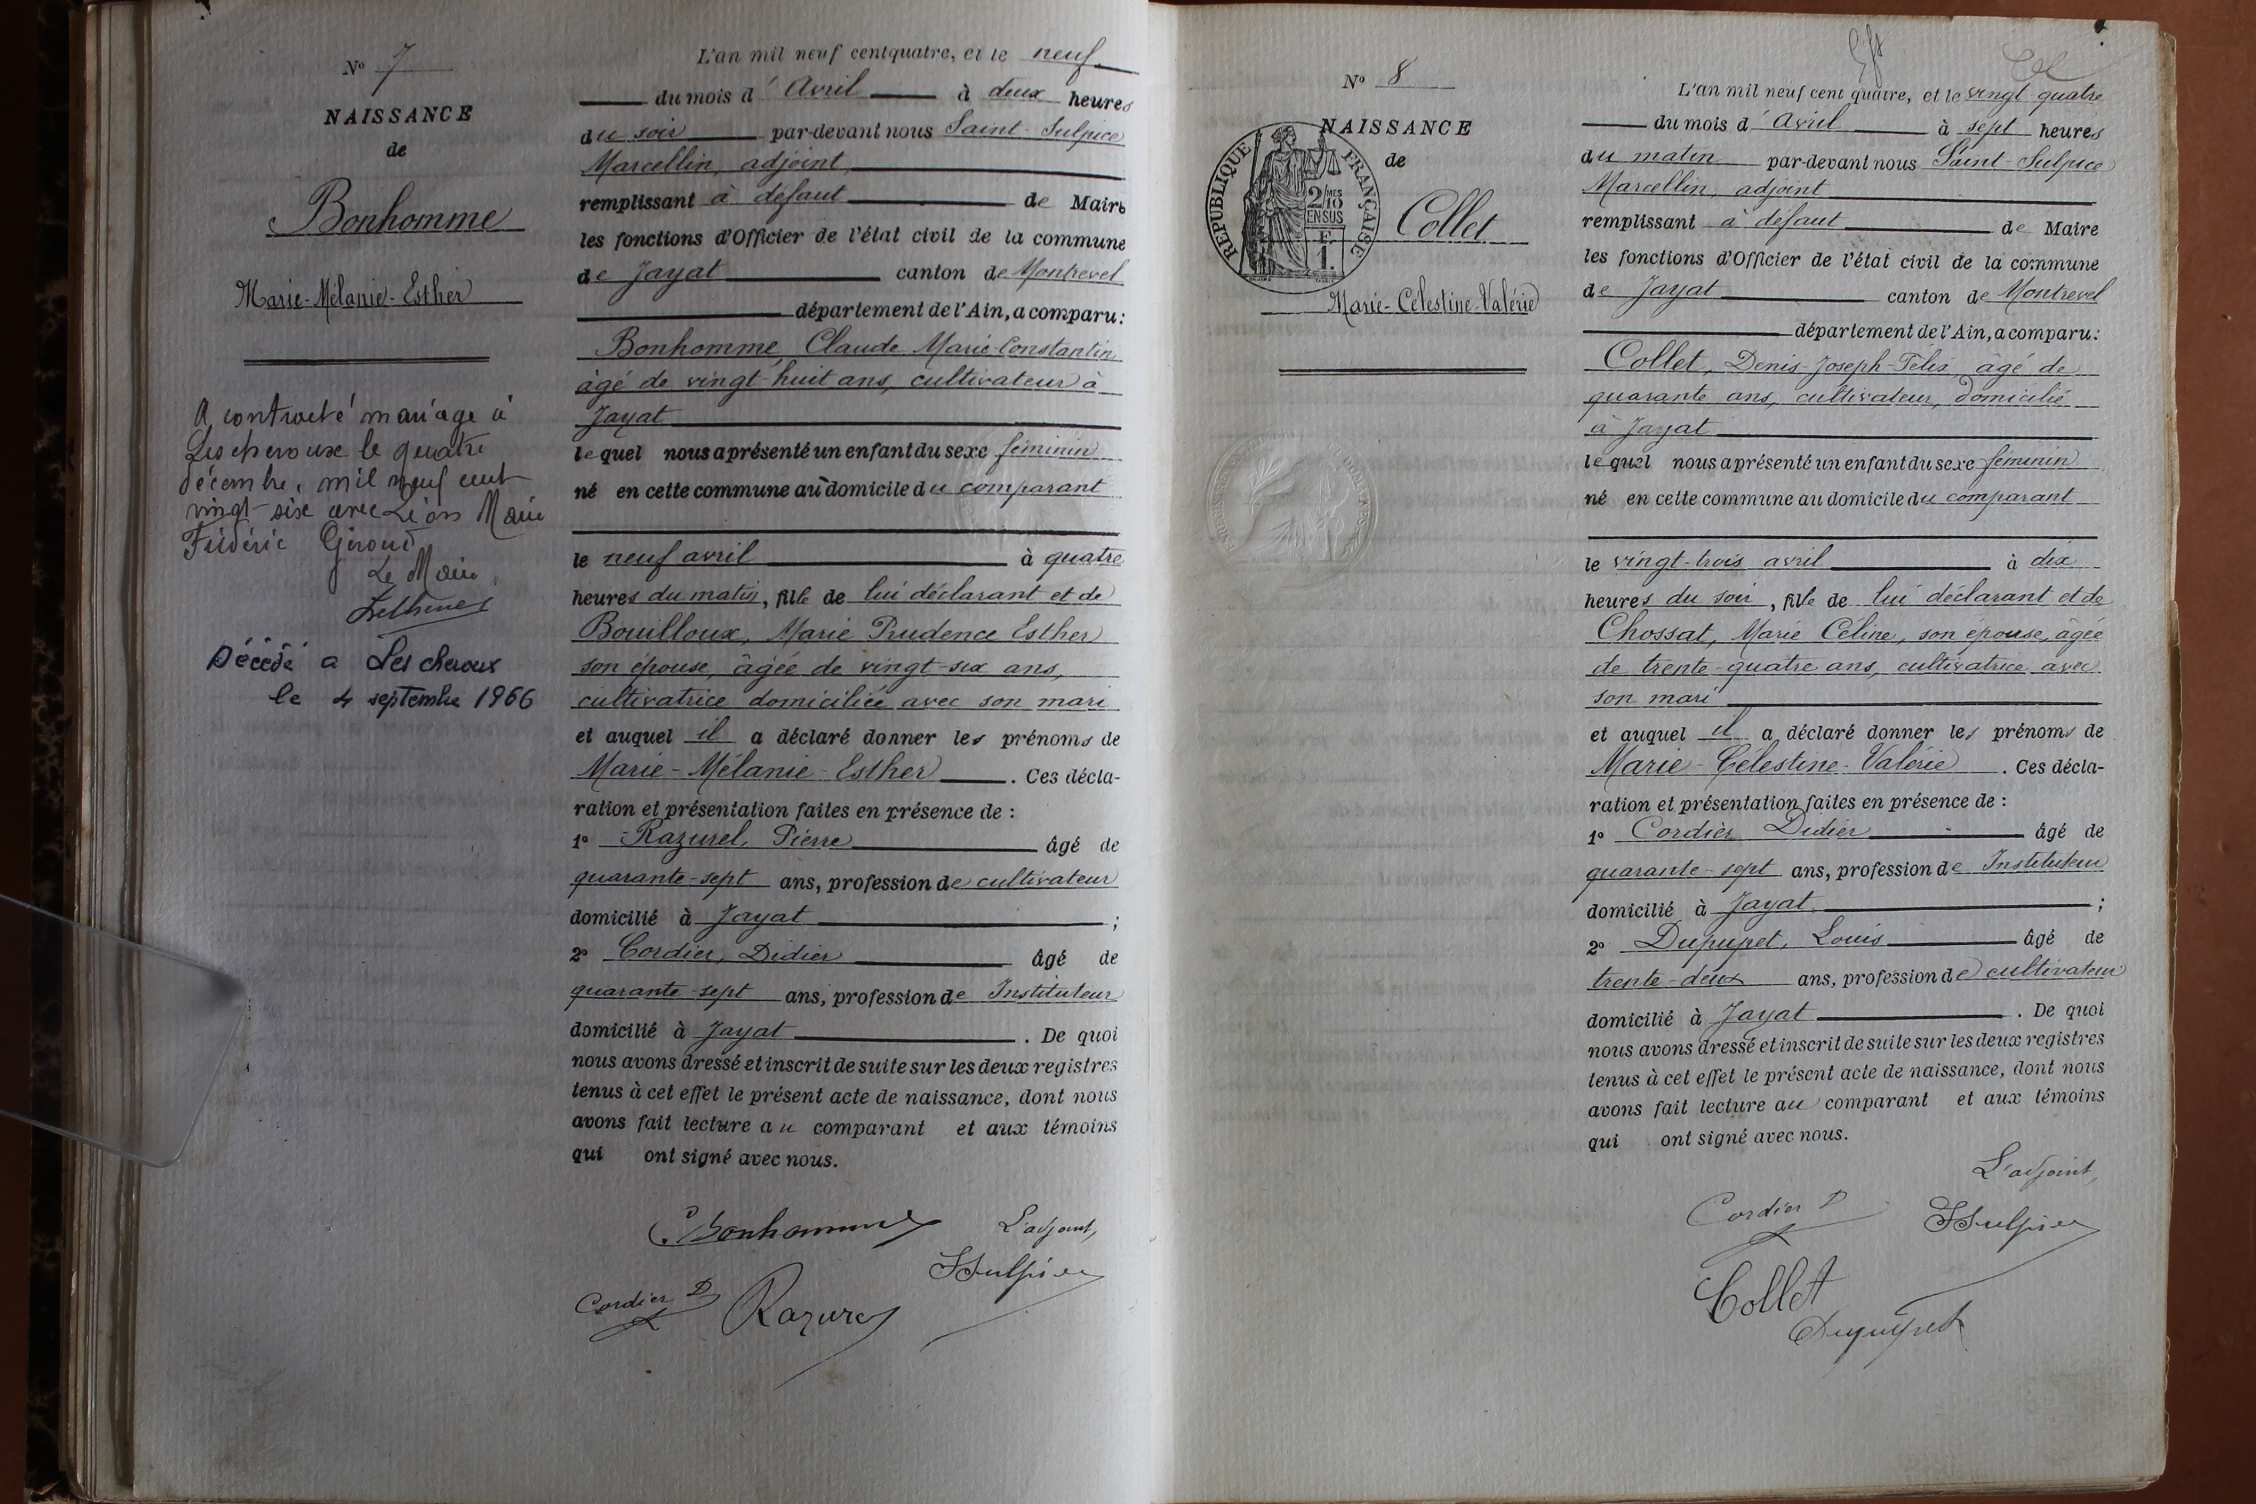 N° 7
NAISSANCE
de
Bonhomme
Marie-Mélanie-Esther
A contracté mariage à
Lescheroux le quatre
décembre, mil neuf cent
vingt-six avec Léon Marie
Frédéric Giroud
Le Maire,
Décédé a Les cheroux
le 4 septembre 1966
L'an mil neuf cent quatre, et le neuf
du mois d'Avril à deux heures
du soir par-devant nous Saint-Sulpice
Marcellin, adjoint,
remplissant à défaut de Maire
les fonctions d'Officier de l'état civil de la commune
de Jayat canton de Montrevel
département de l'Ain, a comparu:
Bonhomme, Claude Marie-Constantin
âgé de vingt-huit ans, cultivateur à
Jayat
lequel nous a présenté un enfant du sexe féminin
né en cette commune au domicile du comparant
le neuf avril à quatre
heures du matin, fille de lui déclarant et de
Bouilloux, Marie Prudence Esther
son épouse, âgée de vingt-six ans,
cultivatrice domiciliée avec son mari
et auquel il a déclaré donner les prénoms de
Marie-Mélanie-Esther. Ces décla-
ration et présentation faites en présence de :
1° Razurel, Pierre âgé de
quarante-sept ans, profession de cultivateur
domicilié à Jayat ;
2° Cordier, Didier âgé de
quarante-sept ans, profession de Instituteur
domicilié à Jayat. De quoi
nous avons dressé et inscrit de suite sur les deux registres
tenus à cet effet le présent acte de naissance, dont nous
avons fait lecture au comparant et aux témoins
qui ont signé avec nous.
C. Bonhomme L'adjoint,
SSulpice
Cordier D Razurel
N° 8
NAISSANCE
de
REPUBLIQUE FRANÇAISE
2/10 MES
EN SUS
F.
1.
Collet
Marie-Célestine-Valérie
L'an mil neuf cent quatre, et le vingt quatre
du mois d'Avril à sept heures
du matin par-devant nous Saint-Sulpice
Marcellin, adjoint
remplissant à défaut de Maire
les fonctions d'Officier de l'état civil de la commune
de Jayat canton de Montrevel
département de l'Ain, a comparu:
Collet, Denis-Joseph-Félix âgé de
quarante ans, cultivateur, domicilié
à Jayat
lequel nous a présenté un enfant du sexe féminin
né en cette commune au domicile du comparant
le vingt-trois avril à dix
heures du soir, fille de lui déclarant et de
Chossat, Marie Céline, son épouse, âgée
de trente-quatre ans, cultivatrice avec
son mari
et auquel il a déclaré donner les prénoms de
Marie-Célestine-Valérie. Ces décla-
ration et présentation faites en présence de :
1° Cordier Didier âgé de
quarante-sept ans, profession de Instituteur
domicilié à Jayat. ;
2° Dupupet, Louis âgé de
trente-deux ans, profession de cultivateur
domicilié à Jayat. De quoi
nous avons dressé et inscrit de suite sur les deux registres
tenus à cet effet le présent acte de naissance, dont nous
avons fait lecture au comparant et aux témoins
qui ont signé avec nous.
L'adjoint,
Cordier D SSulpice
Collet
Dupupet